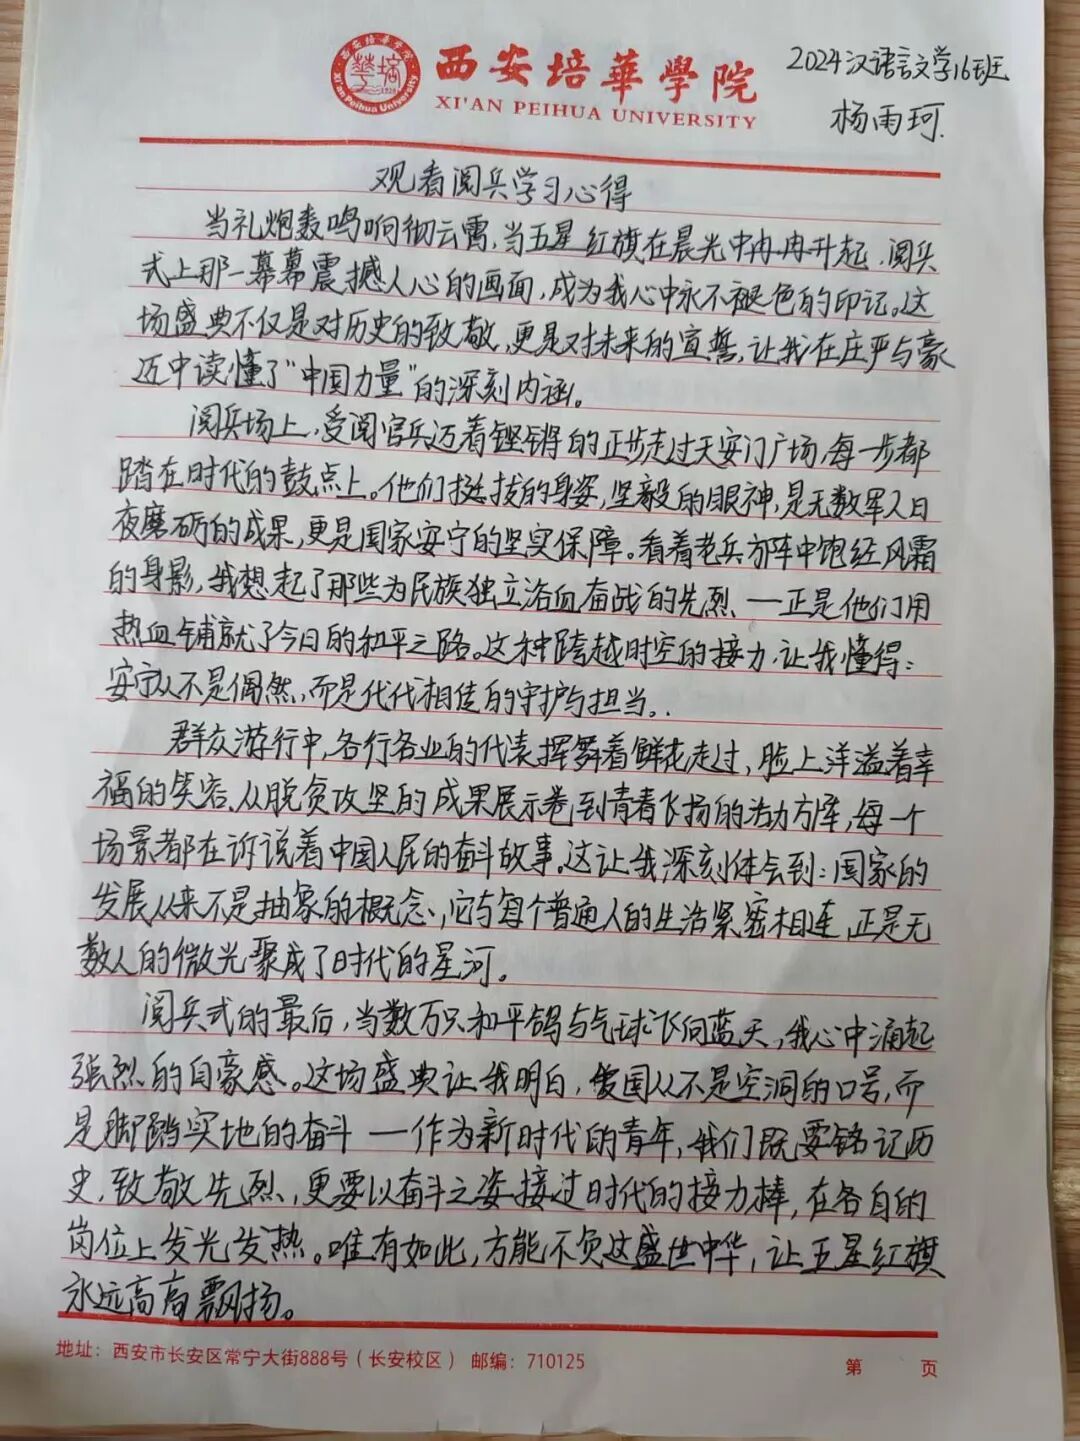 西安培華學院
XI'AN PEIHUA UNIVERSITY
2024汉语言文学16班
杨雨珂.
观看阅兵学习心得
当礼炮轰鸣响彻云霄,当五星红旗在晨光中冉冉升起,阅兵
式上那一幕幕震撼人心的画面,成为我心中永不褪色的印记。这
场盛典不仅是对历史的致敬,更是对未来的宣誓,让我在庄严与豪
迈中读懂了"中国力量"的深刻内涵。
阅兵场上,受阅官兵迈着铿锵的正步走过天安门广场,每一步都
踏在时代的鼓点上。他们挺拔的身姿,坚毅的眼神,是无数军人日
夜磨砺的成果,更是国家安宁的坚实保障。看着老兵方阵中饱经风霜
的身影,我想起了那些为民族独立浴血奋战的先烈、—正是他们用
热血铺就了今日的和平之路。这种跨越时空的接力,让我懂得:
安宁从不是偶然,而是代代相传的守护与担当。.
群众游行中,各行各业的代表挥舞着鲜花走过,脸上洋溢着幸
福的笑容、从脱贫攻坚的成果展示卷到青春飞扬的活动方阵,每一个
场景都在诉说着中国人民的奋斗故事。这让我深刻体会到:国家的
发展从来不是抽象的概念、,它与每个普通人的生活紧密相连,正是无
数人的微光聚成了时代的星河。
阅兵式的最后,当数万只和平鸽与气球飞向蓝天,我心中涌起
强烈的自豪感。这场盛典让我明白,爱国从不是空洞的口号,而
是脚踏实地的奋斗 —作为新时代的青年,我们既要铭记历
史,致敬先烈,更要以奋斗之姿接过时代的接力棒,在各自的
岗位上发光发热。唯有如此,方能不负这盛世中华,让五星红旗
永远高高飘扬。
地址：西安市长安区常宁大街888号（长安校区） 邮编：710125
第 页